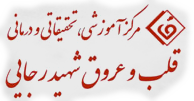 مرکز آموزشی، تحقیقاتی و درمانی
قلب و عروق شهید رجایی